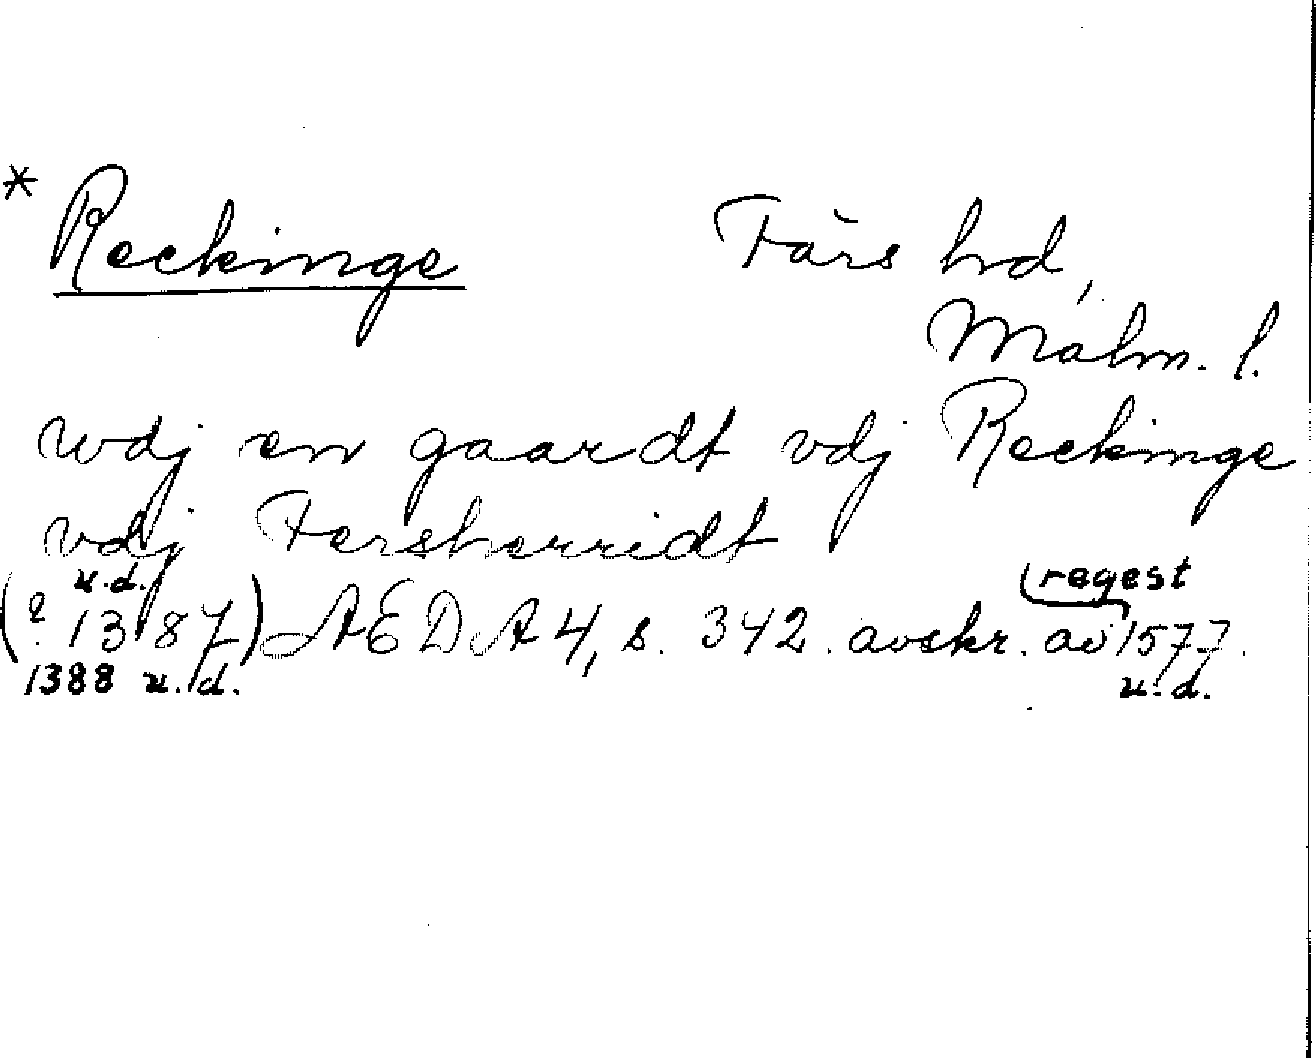 * Reckinge Färs hd,
Malm. l.
wdj en gaardt vdj Reckinge
vdj Fersherridt
u.d. regest
(? 1387) AEDA 4, s. 342. avskr. av 1577.
1388 u. d. u. d.